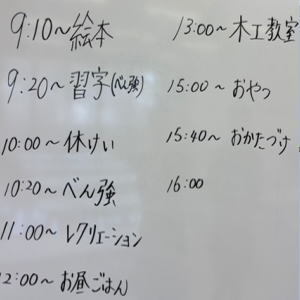 9:10～絵本
9:20～習字(べん強)
10:00～休けい
10:20～べん強
11:00～レクリエーション
12:00～お昼ごはん
13:00～木工教室
15:00～おやつ
15:40～おかたづけ
16:00